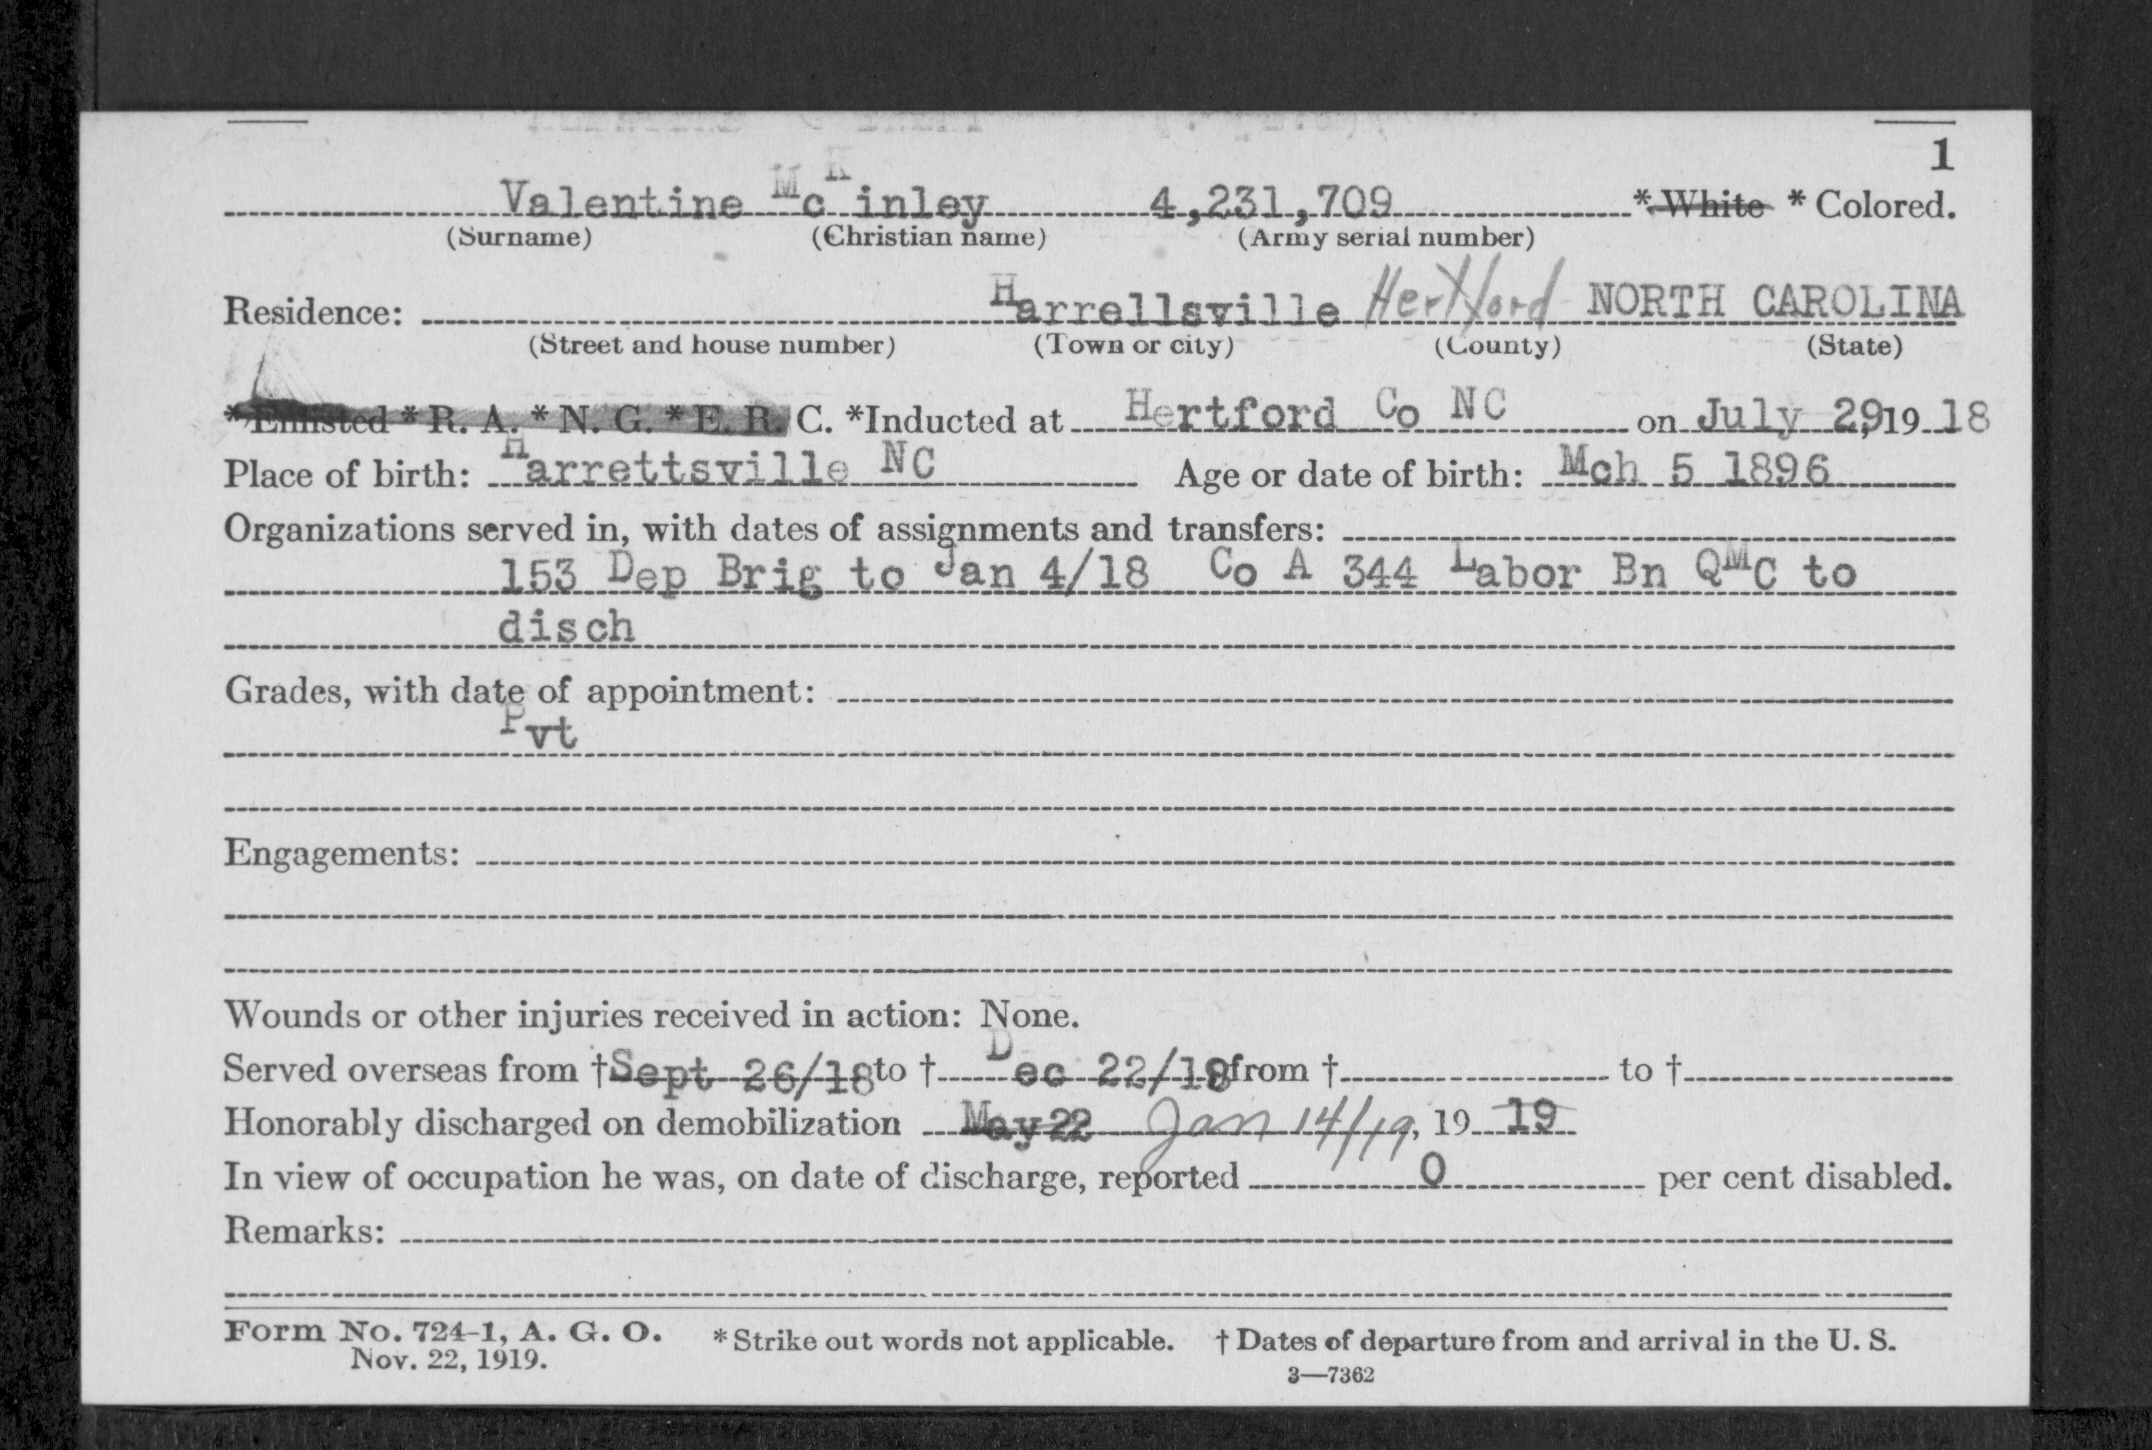 1
Valentine McKinley 4,231,709 * White * Colored.
(Surname) (Christian name) (Army serial number)
Residence: Harrellsville Hertford NORTH CAROLINA
(Street and house number) (Town or city) (County) (State)
* Enlisted * R. A. * N. G. * E. R. C. *Inducted at Hertford Co NC on July 29, 19 18
Place of birth: Harrettsville NC Age or date of birth: Mch 5 1896
Organizations served in, with dates of assignments and transfers:
153 Dep Brig to Jan 4/18 Co A 344 Labor Bn QMC to
disch
Grades, with date of appointment:
Pvt
Engagements:
Wounds or other injuries received in action: None.
Served overseas from † Sept 26/18 to † Dec 22/18 from † to †
Honorably discharged on demobilization May 22 Jan 14/19, 19 19
In view of occupation he was, on date of discharge, reported 0 per cent disabled.
Remarks:
Form No. 724-1, A. G. O. * Strike out words not applicable. † Dates of departure from and arrival in the U. S.
Nov. 22, 1919.
3—7362